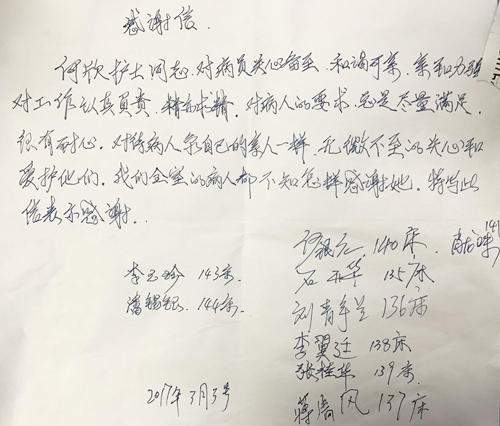 感谢信
何欣护士同志,对病员关心备至,和谒可亲,亲和力强
对工作认真负责,精益求精,对病人的要求,总是尽量满足,
很有耐心。对待病人象自己的亲人一样,无微不至的关心和
爱护他们。我们全室的病人都不知怎样感谢她。特写此
信表示感谢。
140床 141
李玉珍 143床 石 华 135床
144床 刘青兰 136床
李翼廷 138床
张桂华 139床
2017年3月3号 蒋 风 137床